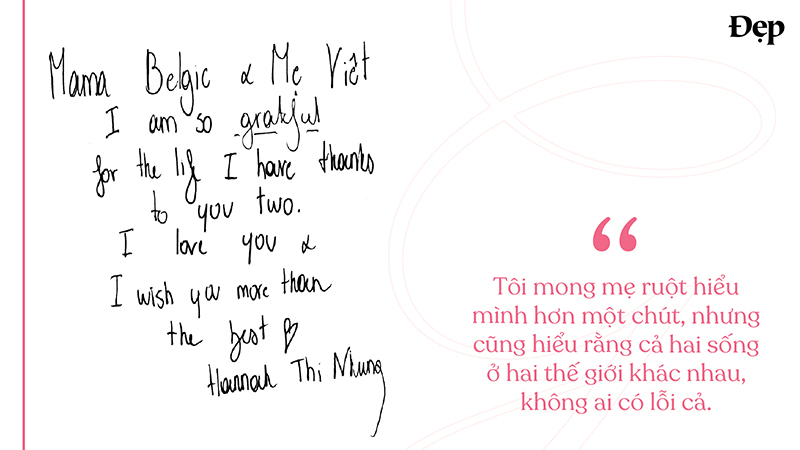 Đẹp
Mama Belgic & Mẹ Việt
I am so grateful
for the life I have thanks
to you two.
I love you &
I wish you more than
the best
Hannah Thi Nhung
“
Tôi mong mẹ ruột hiểu
mình hơn một chút, nhưng
cũng hiểu rằng cả hai sống
ở hai thế giới khác nhau,
không ai có lỗi cả.